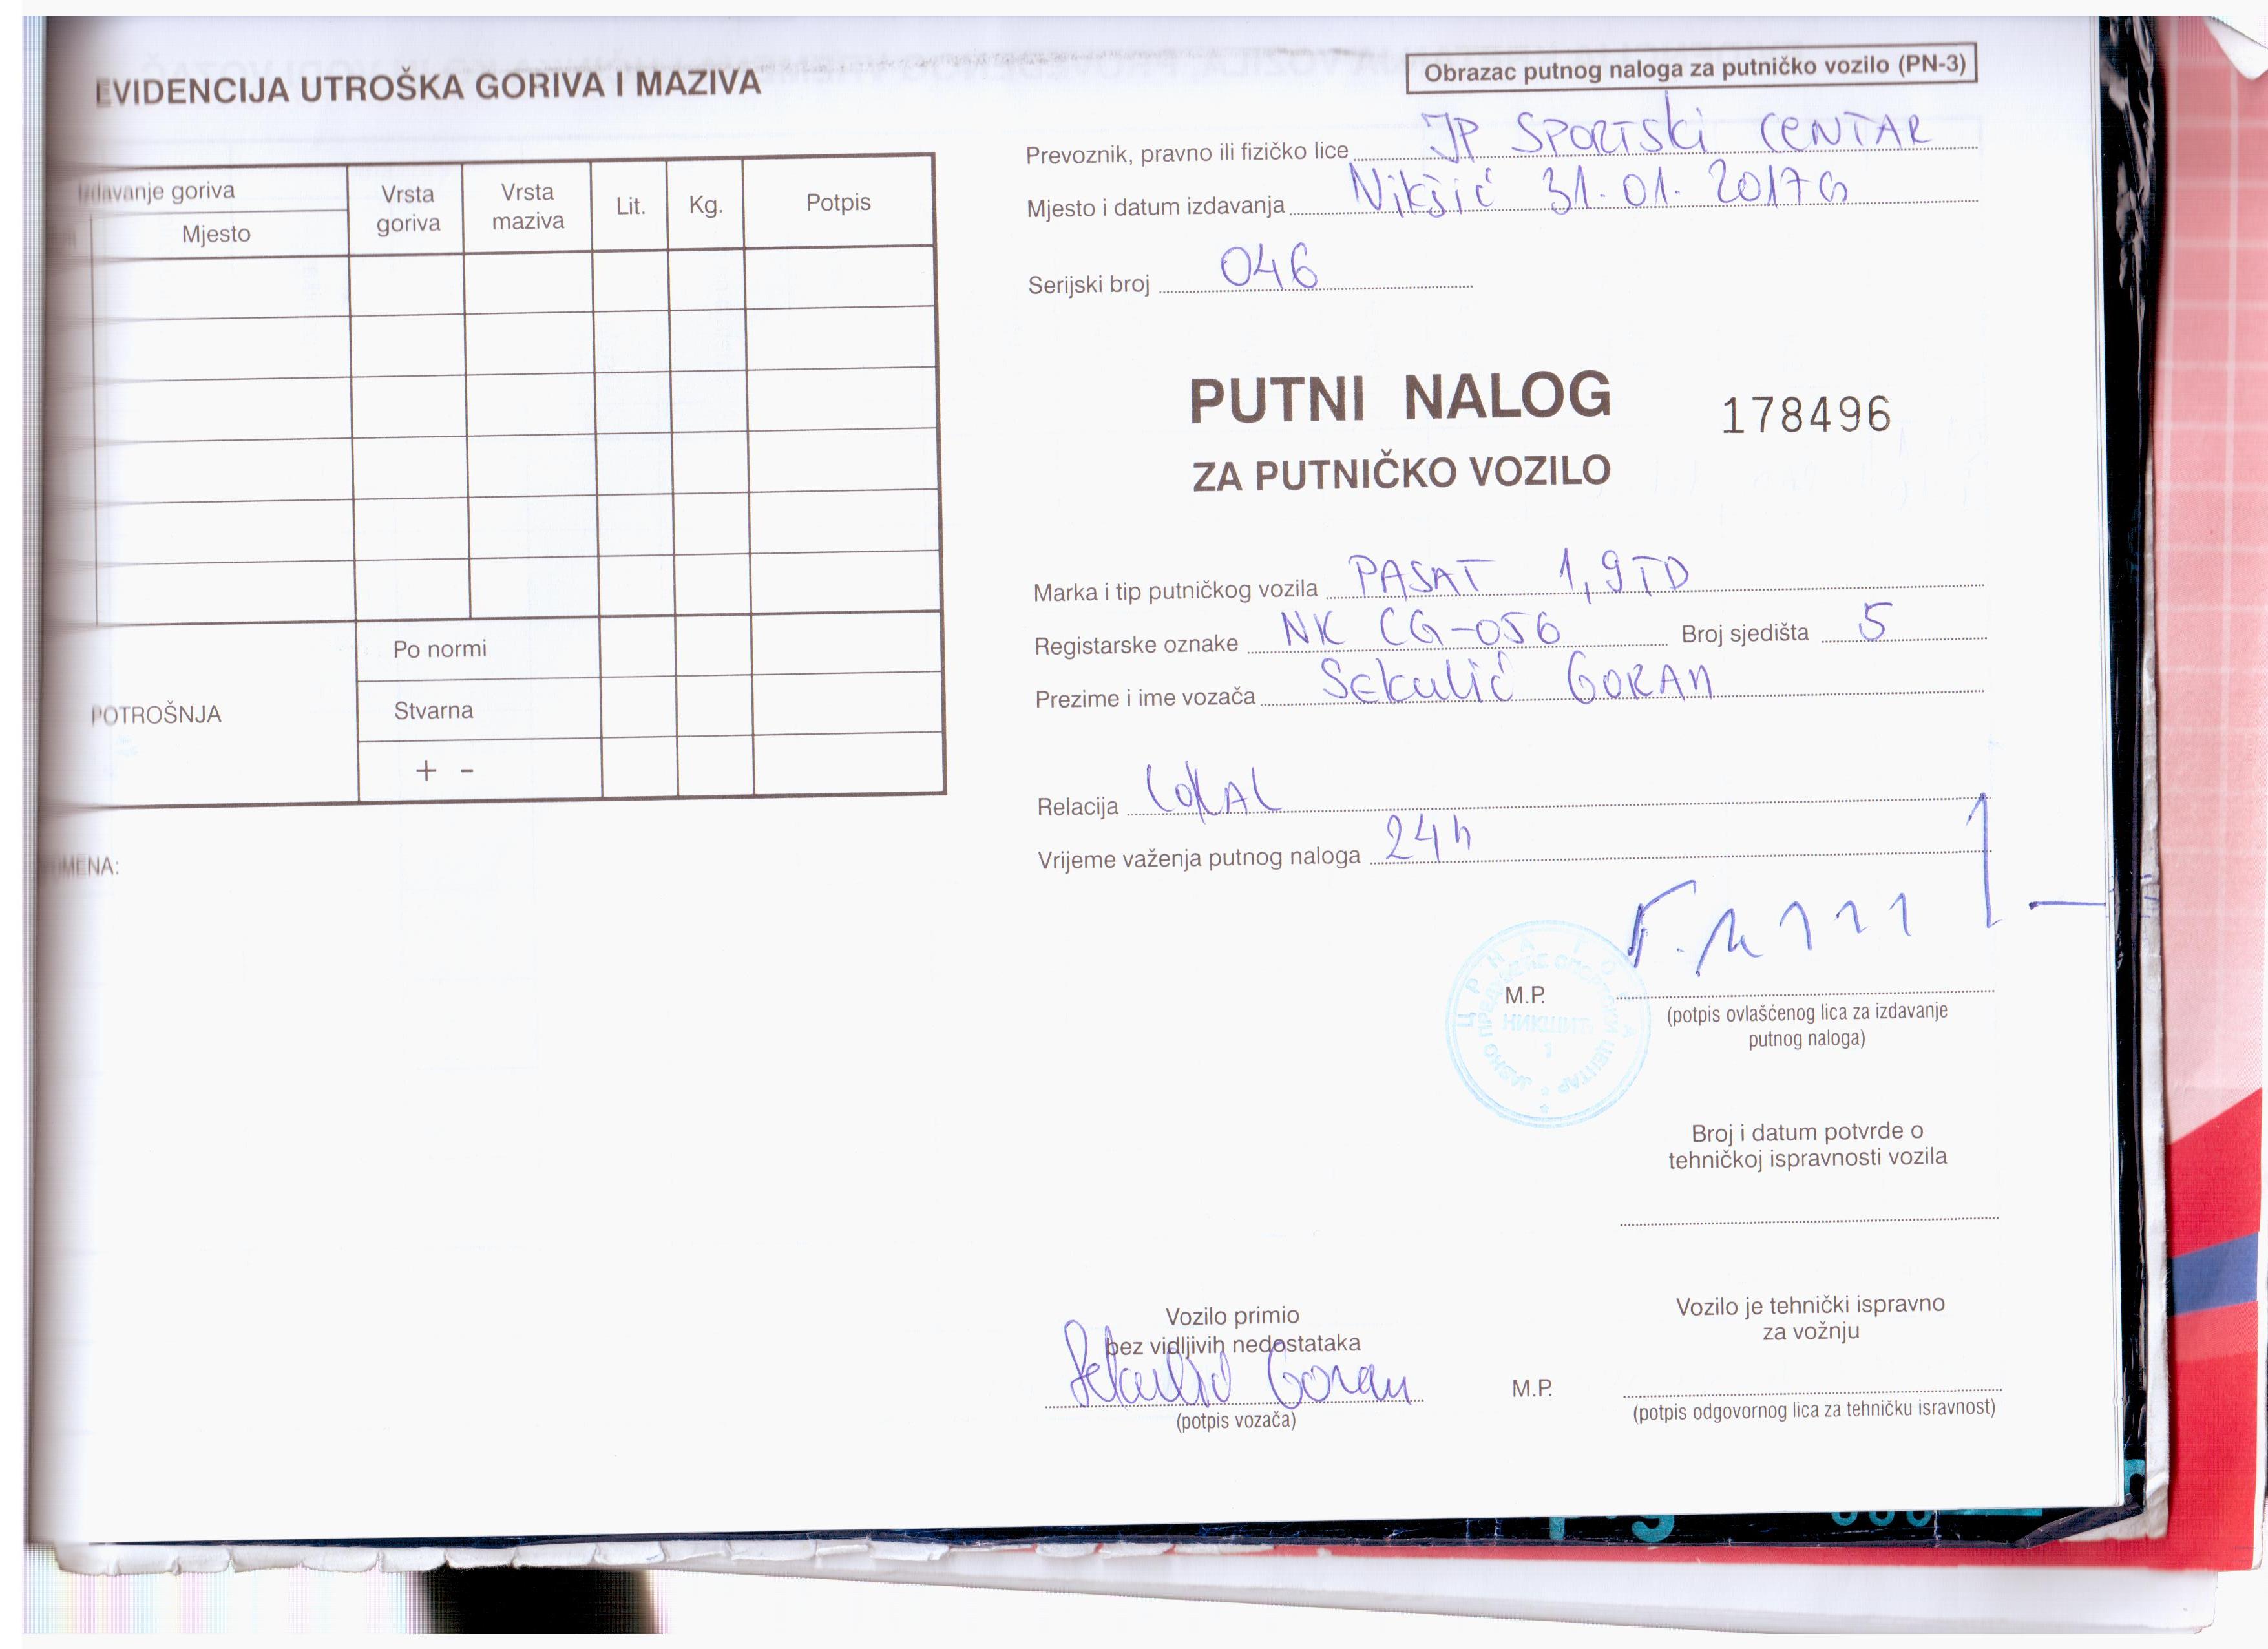 EVIDENCIJA UTROŠKA GORIVA I MAZIVA
Izdavanje goriva
Mjesto
Vrsta goriva
Vrsta maziva
Lit.
Kg.
Potpis
POTROŠNJA
Po normi
Stvarna
+ -
MENA:
Obrazac putnog naloga za putničko vozilo (PN-3)
Prevoznik, pravno ili fizičko lice JP SPORTSki CENTAR
Mjesto i datum izdavanja Nikšić 31.01.2017G
Serijski broj 046
PUTNI NALOG 178496
ZA PUTNIČKO VOZILO
Marka i tip putničkog vozila PASAT 1,9TD
Registarske oznake NK CG-056 Broj sjedišta 5
Prezime i ime vozača Sekulić GORAN
Relacija LOKAL
Vrijeme važenja putnog naloga 24h
ЦРНА ГОРА
ЈАВНО ПРЕДУЗЕЋЕ СПОРТСКИ ЦЕНТАР
НИКШИЋ
1
M.P.
(potpis ovlašćenog lica za izdavanje
putnog naloga)
Broj i datum potvrde o
tehničkoj ispravnosti vozila
Vozilo primio
bez vidljivih nedostataka
Sekulić Goran
(potpis vozača)
Vozilo je tehnički ispravno
za vožnju
M.P.
(potpis odgovornog lica za tehničku isravnost)